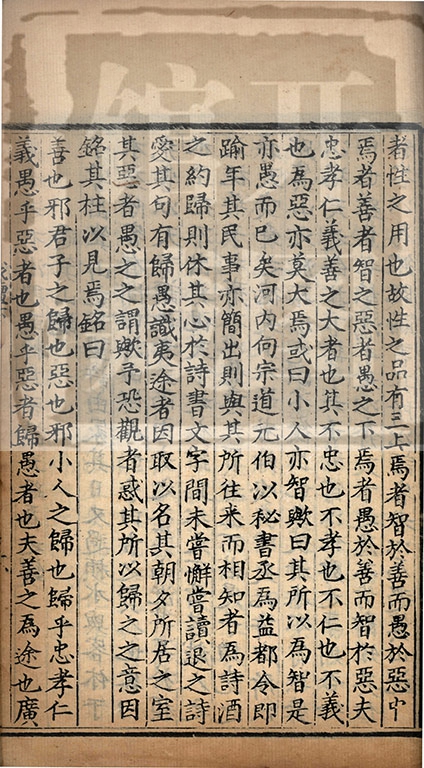 者性之用也故性之品有三上焉者智於善而愚於惡中
焉者善者智之惡者愚之下焉者愚於善而智於惡夫
忠孝仁義善之大者也其不忠也不孝也不仁也不義
也為惡亦莫大焉或曰小人亦智歟曰其所以為智是
亦愚而已矣河內向宗道元伯以秘書丞為益都令即
踰年其民事亦簡出則與其所往來而相知者為詩酒
之約歸則休其心於詩書文字間未嘗懈嘗讀退之詩
愛其句有歸愚識夷途者因取以名其朝夕所居之室
其惡者愚之之謂歟予恐觀者惑其所以歸之之意因
銘其柱以見焉銘曰
善也邪君子之歸也惡也邪小人之歸也歸乎忠孝仁
義愚乎惡者也愚乎惡者歸愚者也夫善之為途也廣